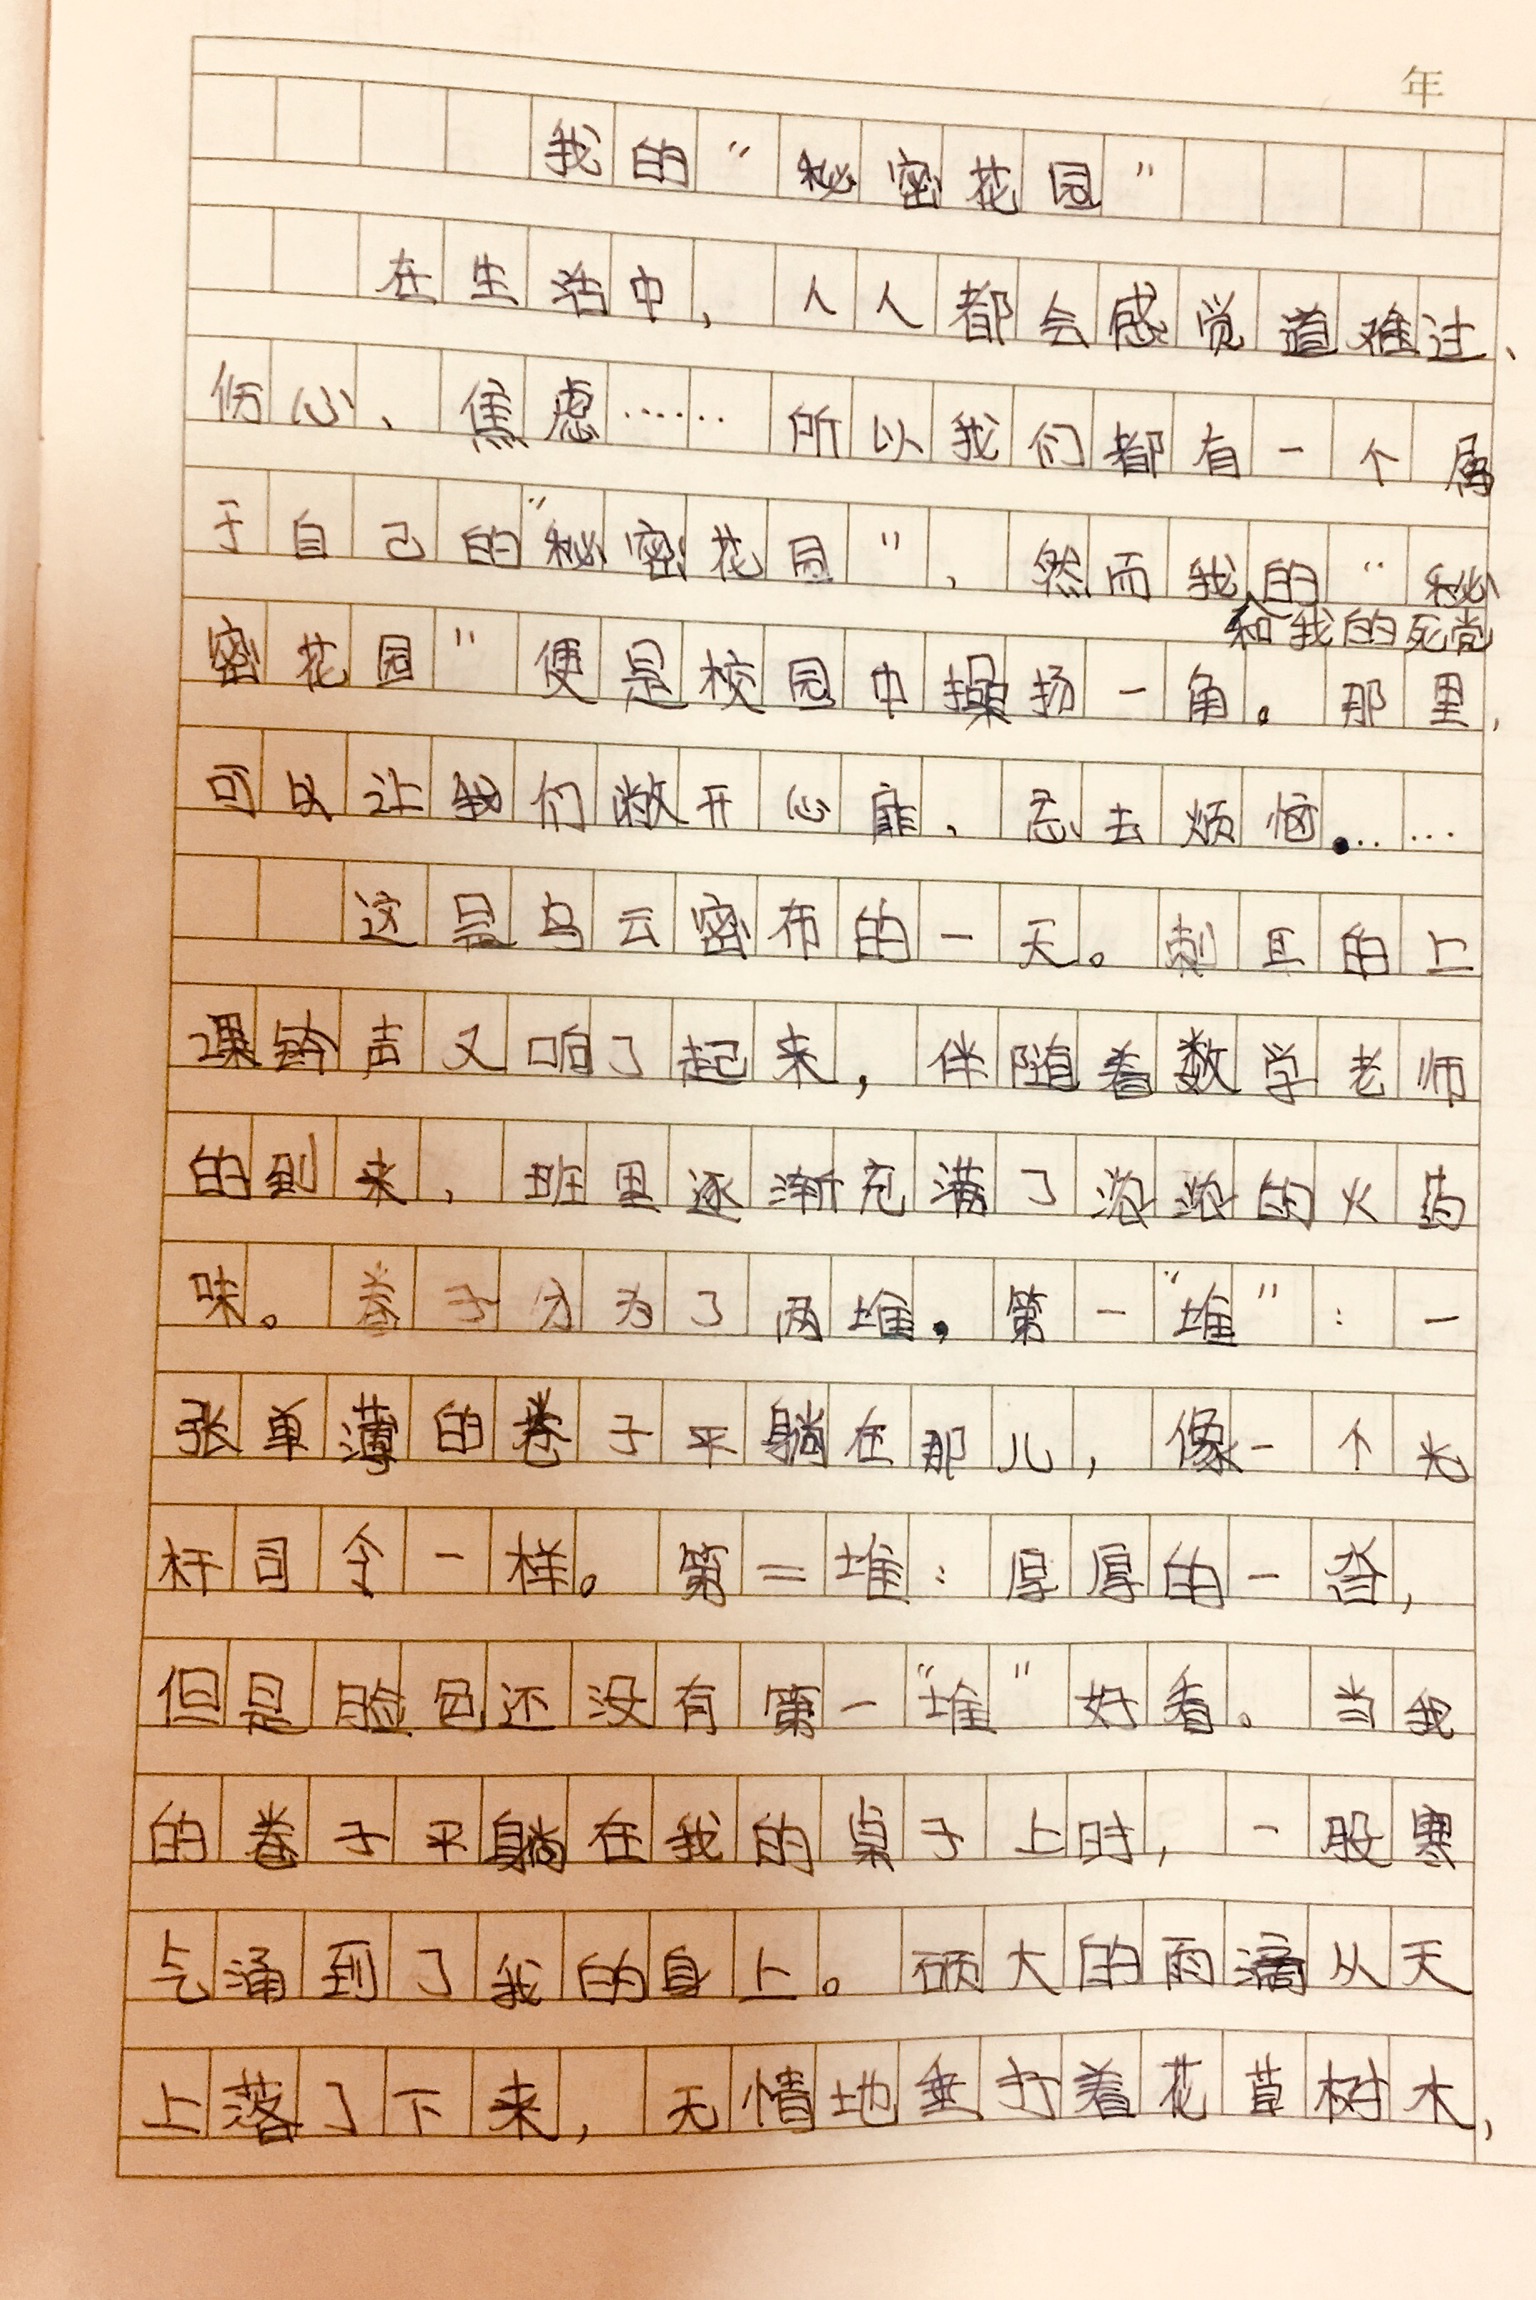 年
我的“秘密花园”
在生活中，人人都会感觉道难过、
伤心、焦虑……所以我们都有一个属
于自己的“秘密花园”，然而我的“秘
和我的死党
密花园”便是校园中操场一角。那里，
可以让我们敞开心扉，忘去烦恼……
这是乌云密布的一天。刺耳的上
课铃声又响了起来，伴随着数学老师
的到来，班里逐渐充满了浓浓的火药
味。卷子分为了两堆，第一“堆”：一
张单薄的卷子平躺在那儿，像一个光
杆司令一样。第二堆：厚厚的一沓，
但是脸色还没有第一“堆”好看。当我
的卷子平躺在我的桌子上时，一股寒
气涌到了我的身上。硕大的雨滴从天
上落了下来，无情地垂打着花草树木，